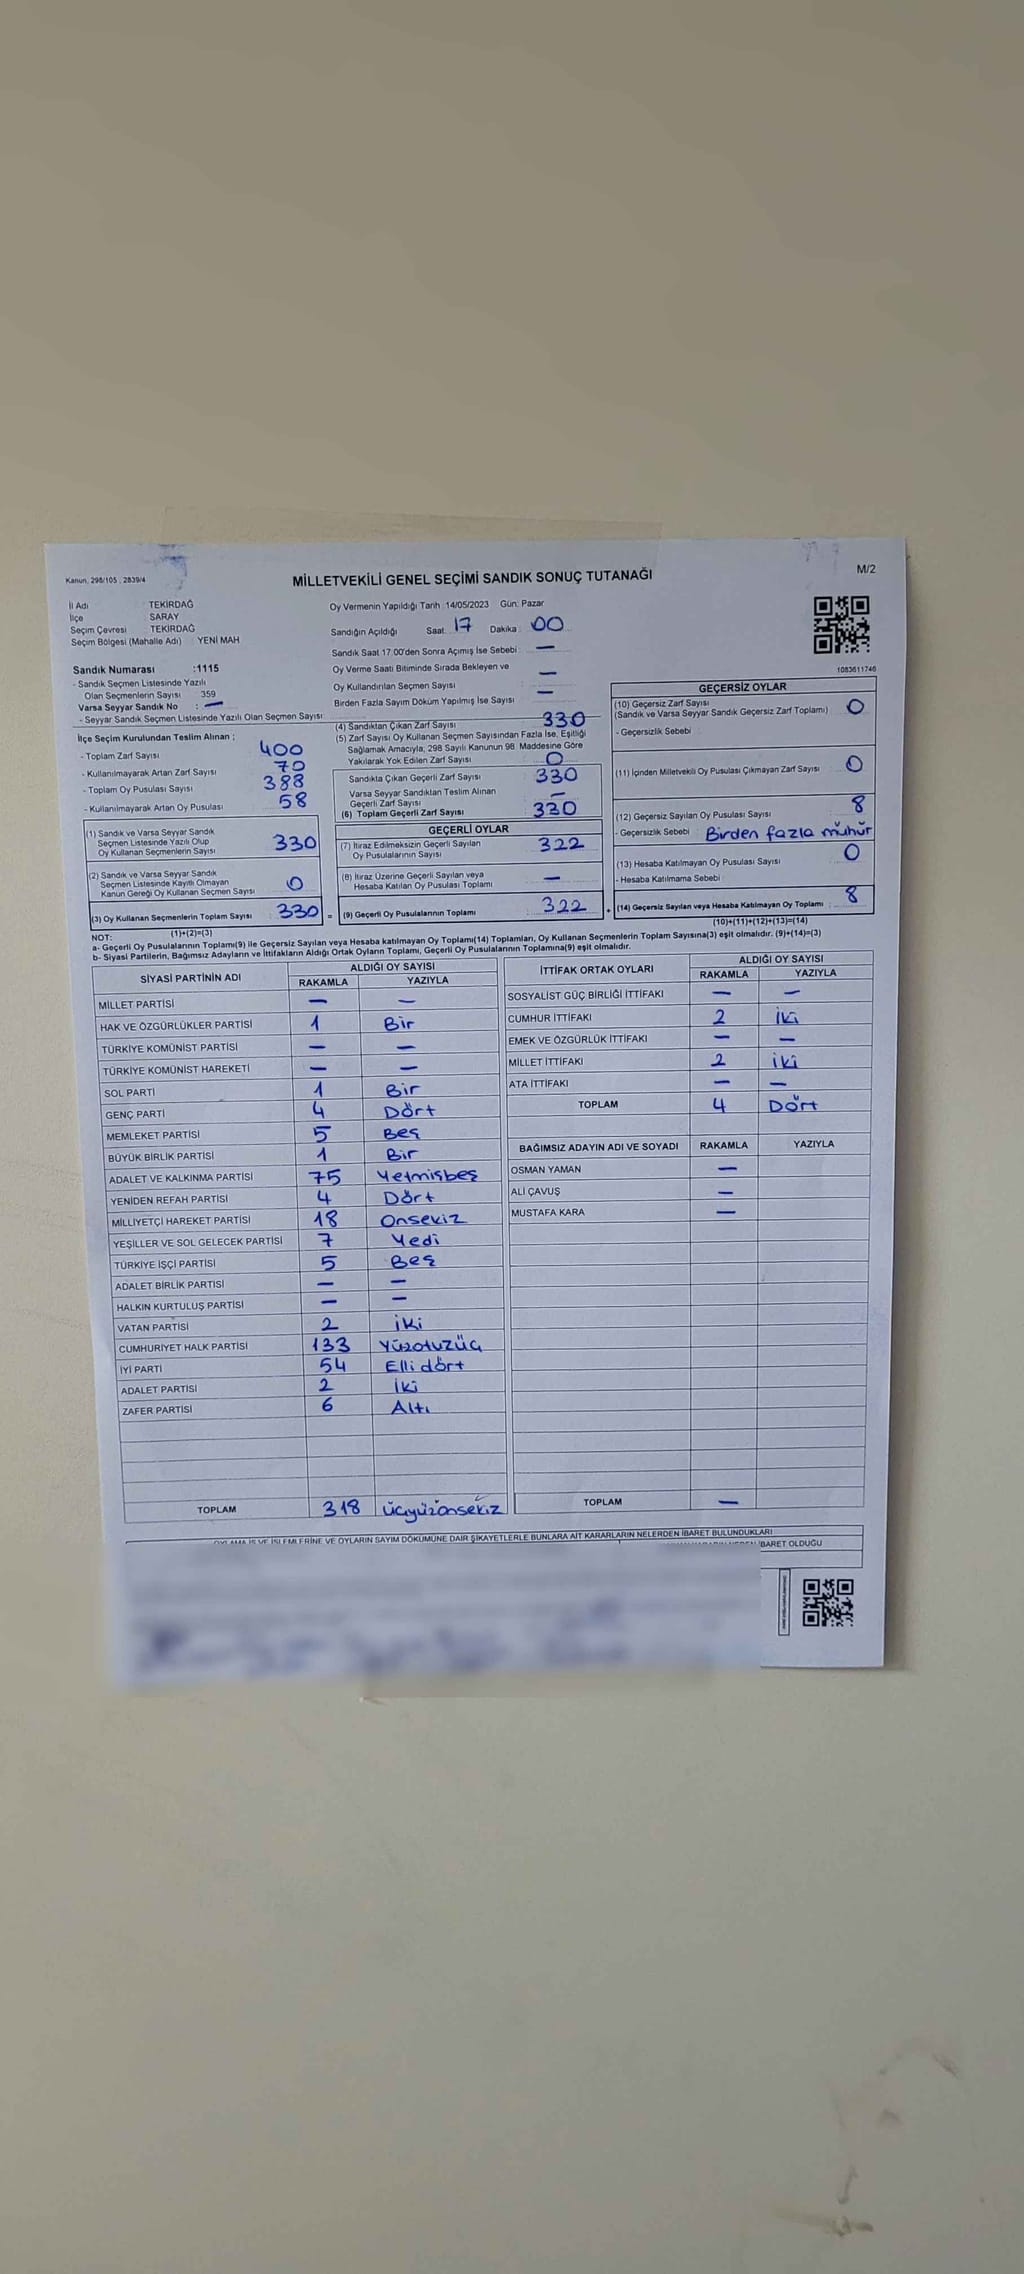 Kanun, 298/105 , 2839/4
MİLLETVEKİLİ GENEL SEÇİMİ SANDIK SONUÇ TUTANAĞI
M/2
İl Adı : TEKİRDAĞ
İlçe : SARAY
Seçim Çevresi : TEKİRDAĞ
Seçim Bölgesi (Mahalle Adı) : YENİ MAH
Sandık Numarası :1115
- Sandık Seçmen Listesinde Yazılı
Olan Seçmenlerin Sayısı : 359
Varsa Seyyar Sandık No : —
- Seyyar Sandık Seçmen Listesinde Yazılı Olan Seçmen Sayısı
Oy Vermenin Yapıldığı Tarih :14/05/2023 Gün: Pazar
Sandığın Açıldığı Saat: 17 Dakika : 00
Sandık Saat 17.00'den Sonra Açımış İse Sebebi : —
Oy Verme Saati Bitiminde Sırada Bekleyen ve —
Oy Kullandırılan Seçmen Sayısı : —
Birden Fazla Sayım Döküm Yapılmış İse Sayısı :
1083611746
İlçe Seçim Kurulundan Teslim Alınan ;
- Toplam Zarf Sayısı : 400
- Kullanılmayarak Artan Zarf Sayısı : 70
- Toplam Oy Pusulası Sayısı : 388
- Kullanılmayarak Artan Oy Pusulası : 58
(1) Sandık ve Varsa Seyyar Sandık
Seçmen Listesinde Yazılı Olup
Oy Kullanan Seçmenlerin Sayısı : 330
(2) Sandık ve Varsa Seyyar Sandık
Seçmen Listesinde Kayıtlı Olmayan
Kanun Gereği Oy Kullanan Seçmen Sayısı : 0
(3) Oy Kullanan Seçmenlerin Toplam Sayısı : 330 =
(1)+(2)=(3)
(4) Sandıktan Çıkan Zarf Sayısı : 330
(5) Zarf Sayısı Oy Kullanan Seçmen Sayısından Fazla İse, Eşitliği
Sağlamak Amacıyla, 298 Sayılı Kanunun 98. Maddesine Göre
Yakılarak Yok Edilen Zarf Sayısı : 0
Sandıkta Çıkan Geçerli Zarf Sayısı : 330
Varsa Seyyar Sandıktan Teslim Alınan
Geçerli Zarf Sayısı : —
(6) Toplam Geçerli Zarf Sayısı : 330
GEÇERLİ OYLAR
(7) İtiraz Edilmeksizin Geçerli Sayılan
Oy Pusulalarının Sayısı : 322
(8) İtiraz Üzerine Geçerli Sayılan veya
Hesaba Katılan Oy Pusulası Toplamı : —
(9) Geçerli Oy Pusulalarının Toplamı : 322 +
GEÇERSİZ OYLAR
(10) Geçersiz Zarf Sayısı
(Sandık ve Varsa Seyyar Sandık Geçersiz Zarf Toplamı) : 0
- Geçersizlik Sebebi :
(11) İçinden Milletvekili Oy Pusulası Çıkmayan Zarf Sayısı : 0
(12) Geçersiz Sayılan Oy Pusulası Sayısı : 8
- Geçersizlik Sebebi : Birden fazla mühür
(13) Hesaba Katılmayan Oy Pusulası Sayısı : 0
- Hesaba Katılmama Sebebi :
(14) Geçersiz Sayılan veya Hesaba Katılmayan Oy Toplamı : 8
(10)+(11)+(12)+(13)=(14)
NOT:
a- Geçerli Oy Pusulalarının Toplamı(9) ile Geçersiz Sayılan veya Hesaba katılmayan Oy Toplamı(14) Toplamları, Oy Kullanan Seçmenlerin Toplam Sayısına(3) eşit olmalıdır. (9)+(14)=(3)
b- Siyasi Partilerin, Bağımsız Adayların ve İttifakların Aldığı Ortak Oyların Toplamı, Geçerli Oy Pusulalarının Toplamına(9) eşit olmalıdır.
SİYASİ PARTİNİN ADI ALDIĞI OY SAYISI
RAKAMLA YAZIYLA
MİLLET PARTİSİ — —
HAK VE ÖZGÜRLÜKLER PARTİSİ 1 Bir
TÜRKİYE KOMÜNİST PARTİSİ — —
TÜRKİYE KOMÜNİST HAREKETİ — —
SOL PARTİ 1 Bir
GENÇ PARTİ 4 Dört
MEMLEKET PARTİSİ 5 Beş
BÜYÜK BİRLİK PARTİSİ 1 Bir
ADALET VE KALKINMA PARTİSİ 75 Yetmişbeş
YENİDEN REFAH PARTİSİ 4 Dört
MİLLİYETÇİ HAREKET PARTİSİ 18 Onsekiz
YEŞİLLER VE SOL GELECEK PARTİSİ 7 Yedi
TÜRKİYE İŞÇİ PARTİSİ 5 Beş
ADALET BİRLİK PARTİSİ — —
HALKIN KURTULUŞ PARTİSİ — —
VATAN PARTİSİ 2 İki
CUMHURİYET HALK PARTİSİ 133 Yüzotuzüç
İYİ PARTİ 54 Elli dört
ADALET PARTİSİ 2 İki
ZAFER PARTİSİ 6 Altı
TOPLAM 318 Üçyüzonsekiz
İTTİFAK ORTAK OYLARI ALDIĞI OY SAYISI
RAKAMLA YAZIYLA
SOSYALİST GÜÇ BİRLİĞİ İTTİFAKI — —
CUMHUR İTTİFAKI 2 İki
EMEK VE ÖZGÜRLÜK İTTİFAKI — —
MİLLET İTTİFAKI 2 İki
ATA İTTİFAKI — —
TOPLAM 4 Dört
BAĞIMSIZ ADAYIN ADI VE SOYADI RAKAMLA YAZIYLA
OSMAN YAMAN —
ALİ ÇAVUŞ —
MUSTAFA KARA —
TOPLAM —
OYLAMA İŞ VE İŞLEMLERİNE VE OYLARIN SAYIM DÖKÜMÜNE DAİR ŞİKAYETLERLE BUNLARA AİT KARARLARIN NELERDEN İBARET BULUNDUKLARI
İBARET OLDUĞU